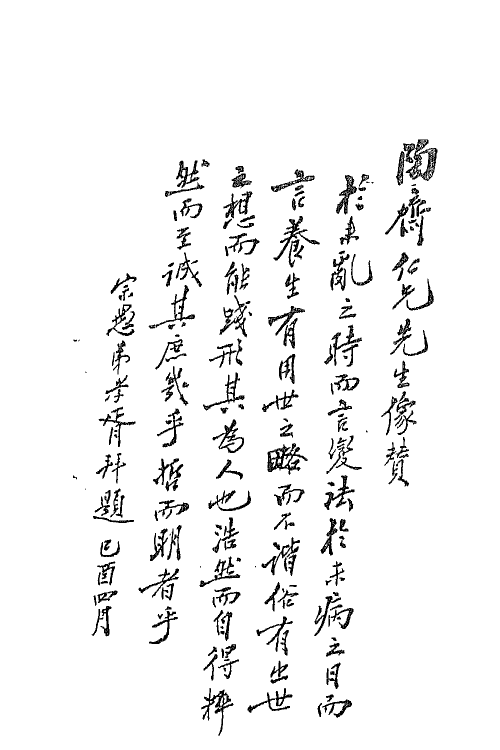 陶齋仁兄先生像贊
於未亂之時而言變法於未病之日而
言養生有用世之略而不諧俗有出世
之想而能踐形其為人也浩然而自得粹
然而至誠其庶幾乎哲而明者乎
宗愚弟孝胥拜題 己酉四月